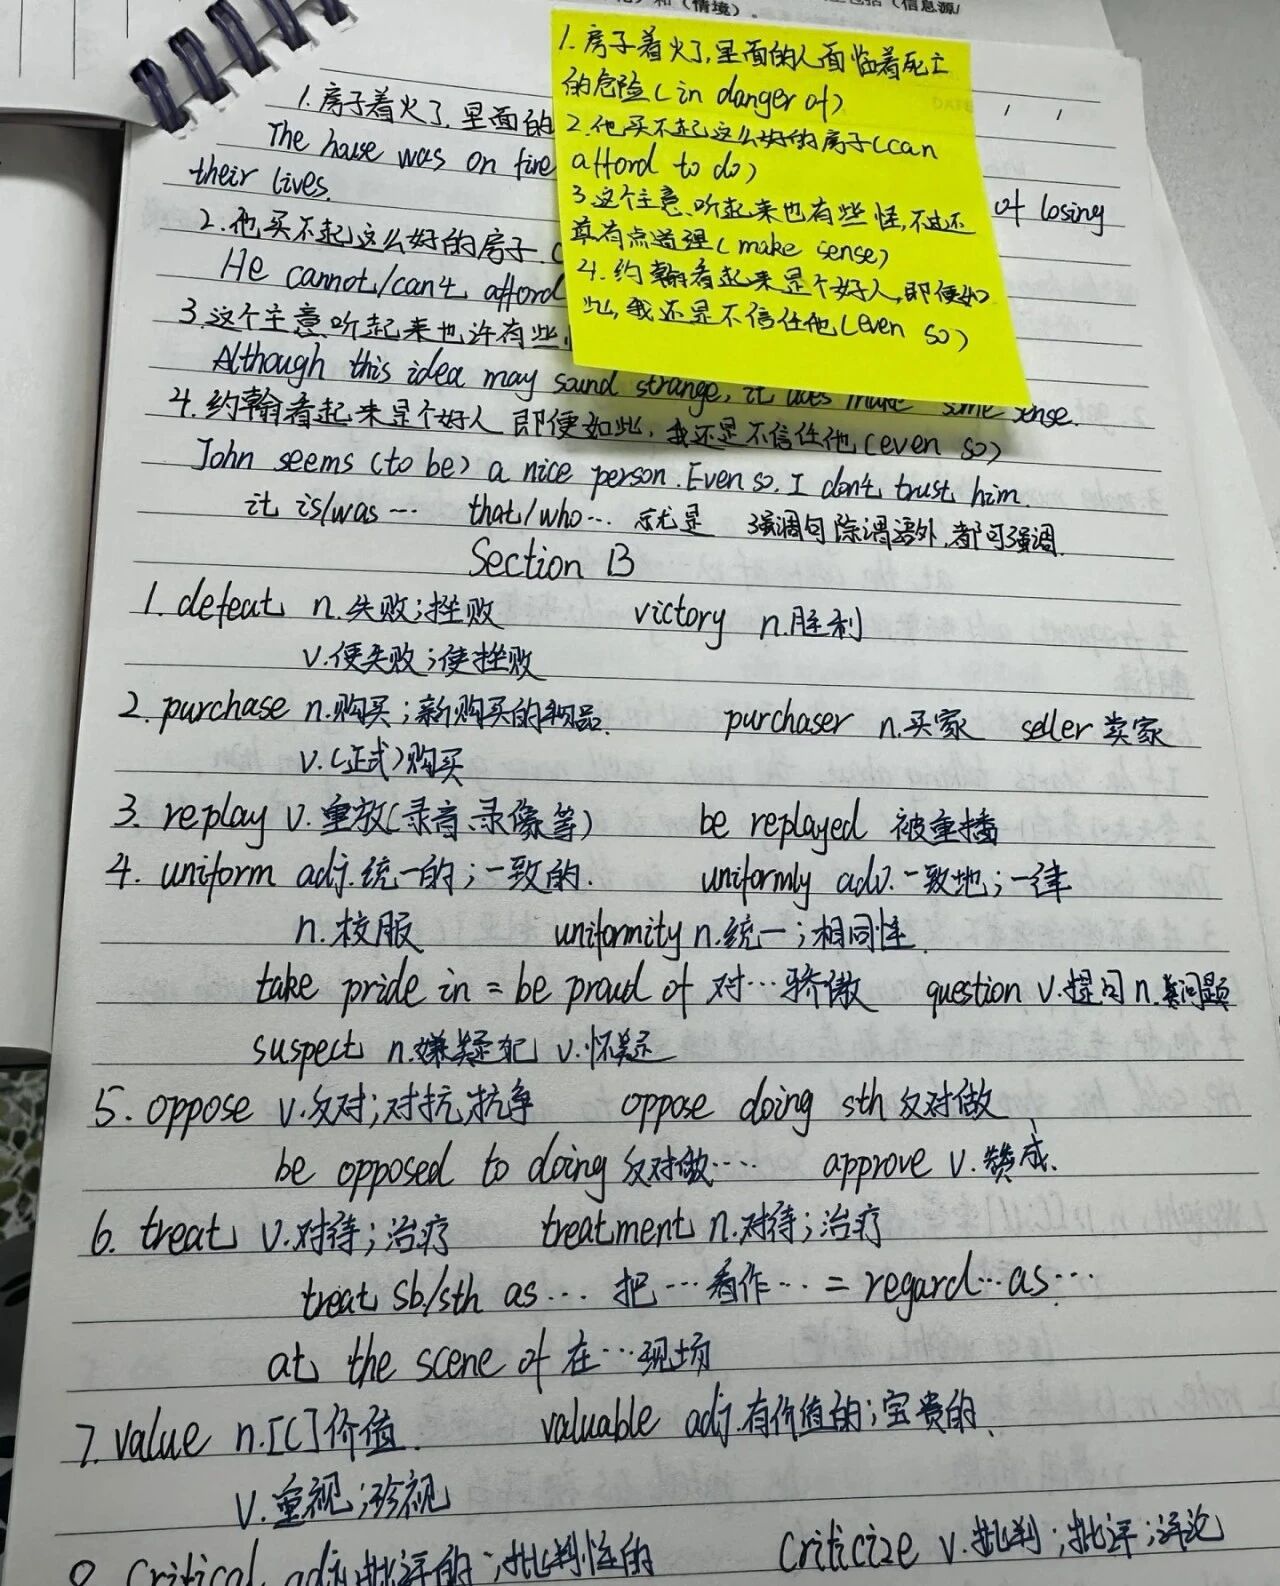 和（情境）.
包括（信息源/
1.房子着火了,里面的人面临着死亡
的危险(in danger of)
2.他买不起这么好的房子(can
afford to do)
3.这个主意,听起来也有些怪,不过还
算有点道理(make sense)
4.约翰看起来是个好人,即便如
此,我还是不信任他(even so)
1.房子着火了,里面的
The house was on fire
of losing
their lives.
2.他买不起这么好的房子.(
He cannot/can't afford
3.这个主意听起来也许有些
Although this idea may sound strange, it does make some sense.
4.约翰看起来是个好人 即便如此,我还是不信任他(even so)
John seems (to be) a nice person. Even so, I don't trust him.
it is/was… that/who… 就是 强调句 除谓语外,都可强调.
Section B
1. defeat n.失败;挫败 victory n.胜利
v.使失败;使挫败
2. purchase n.购买;新购买的物品. purchaser n.买家 seller 卖家
v.(正式)购买
3. replay v.重放(录音、录像等) be replayed 被重播
4. uniform adj.统一的;一致的. uniformly adv.一致地;一律
n.校服 uniformity n.统一;相同性
take pride in = be proud of 对…骄傲 question v.提问 n.问题
suspect n.嫌疑犯 v.怀疑
5. oppose v.反对;对抗,抗争 oppose doing sth 反对做
be opposed to doing 反对做…… approve v.赞成.
6. treat v.对待;治疗 treatment n.对待;治疗
treat sb/sth as… 把…看作… = regard…as…
at the scene of 在…现场
7. value n.[C]价值. valuable adj.有价值的;宝贵的、
v.重视;珍视
8. critical adj.批评的;批判性的 criticize v.批判;批评;评论